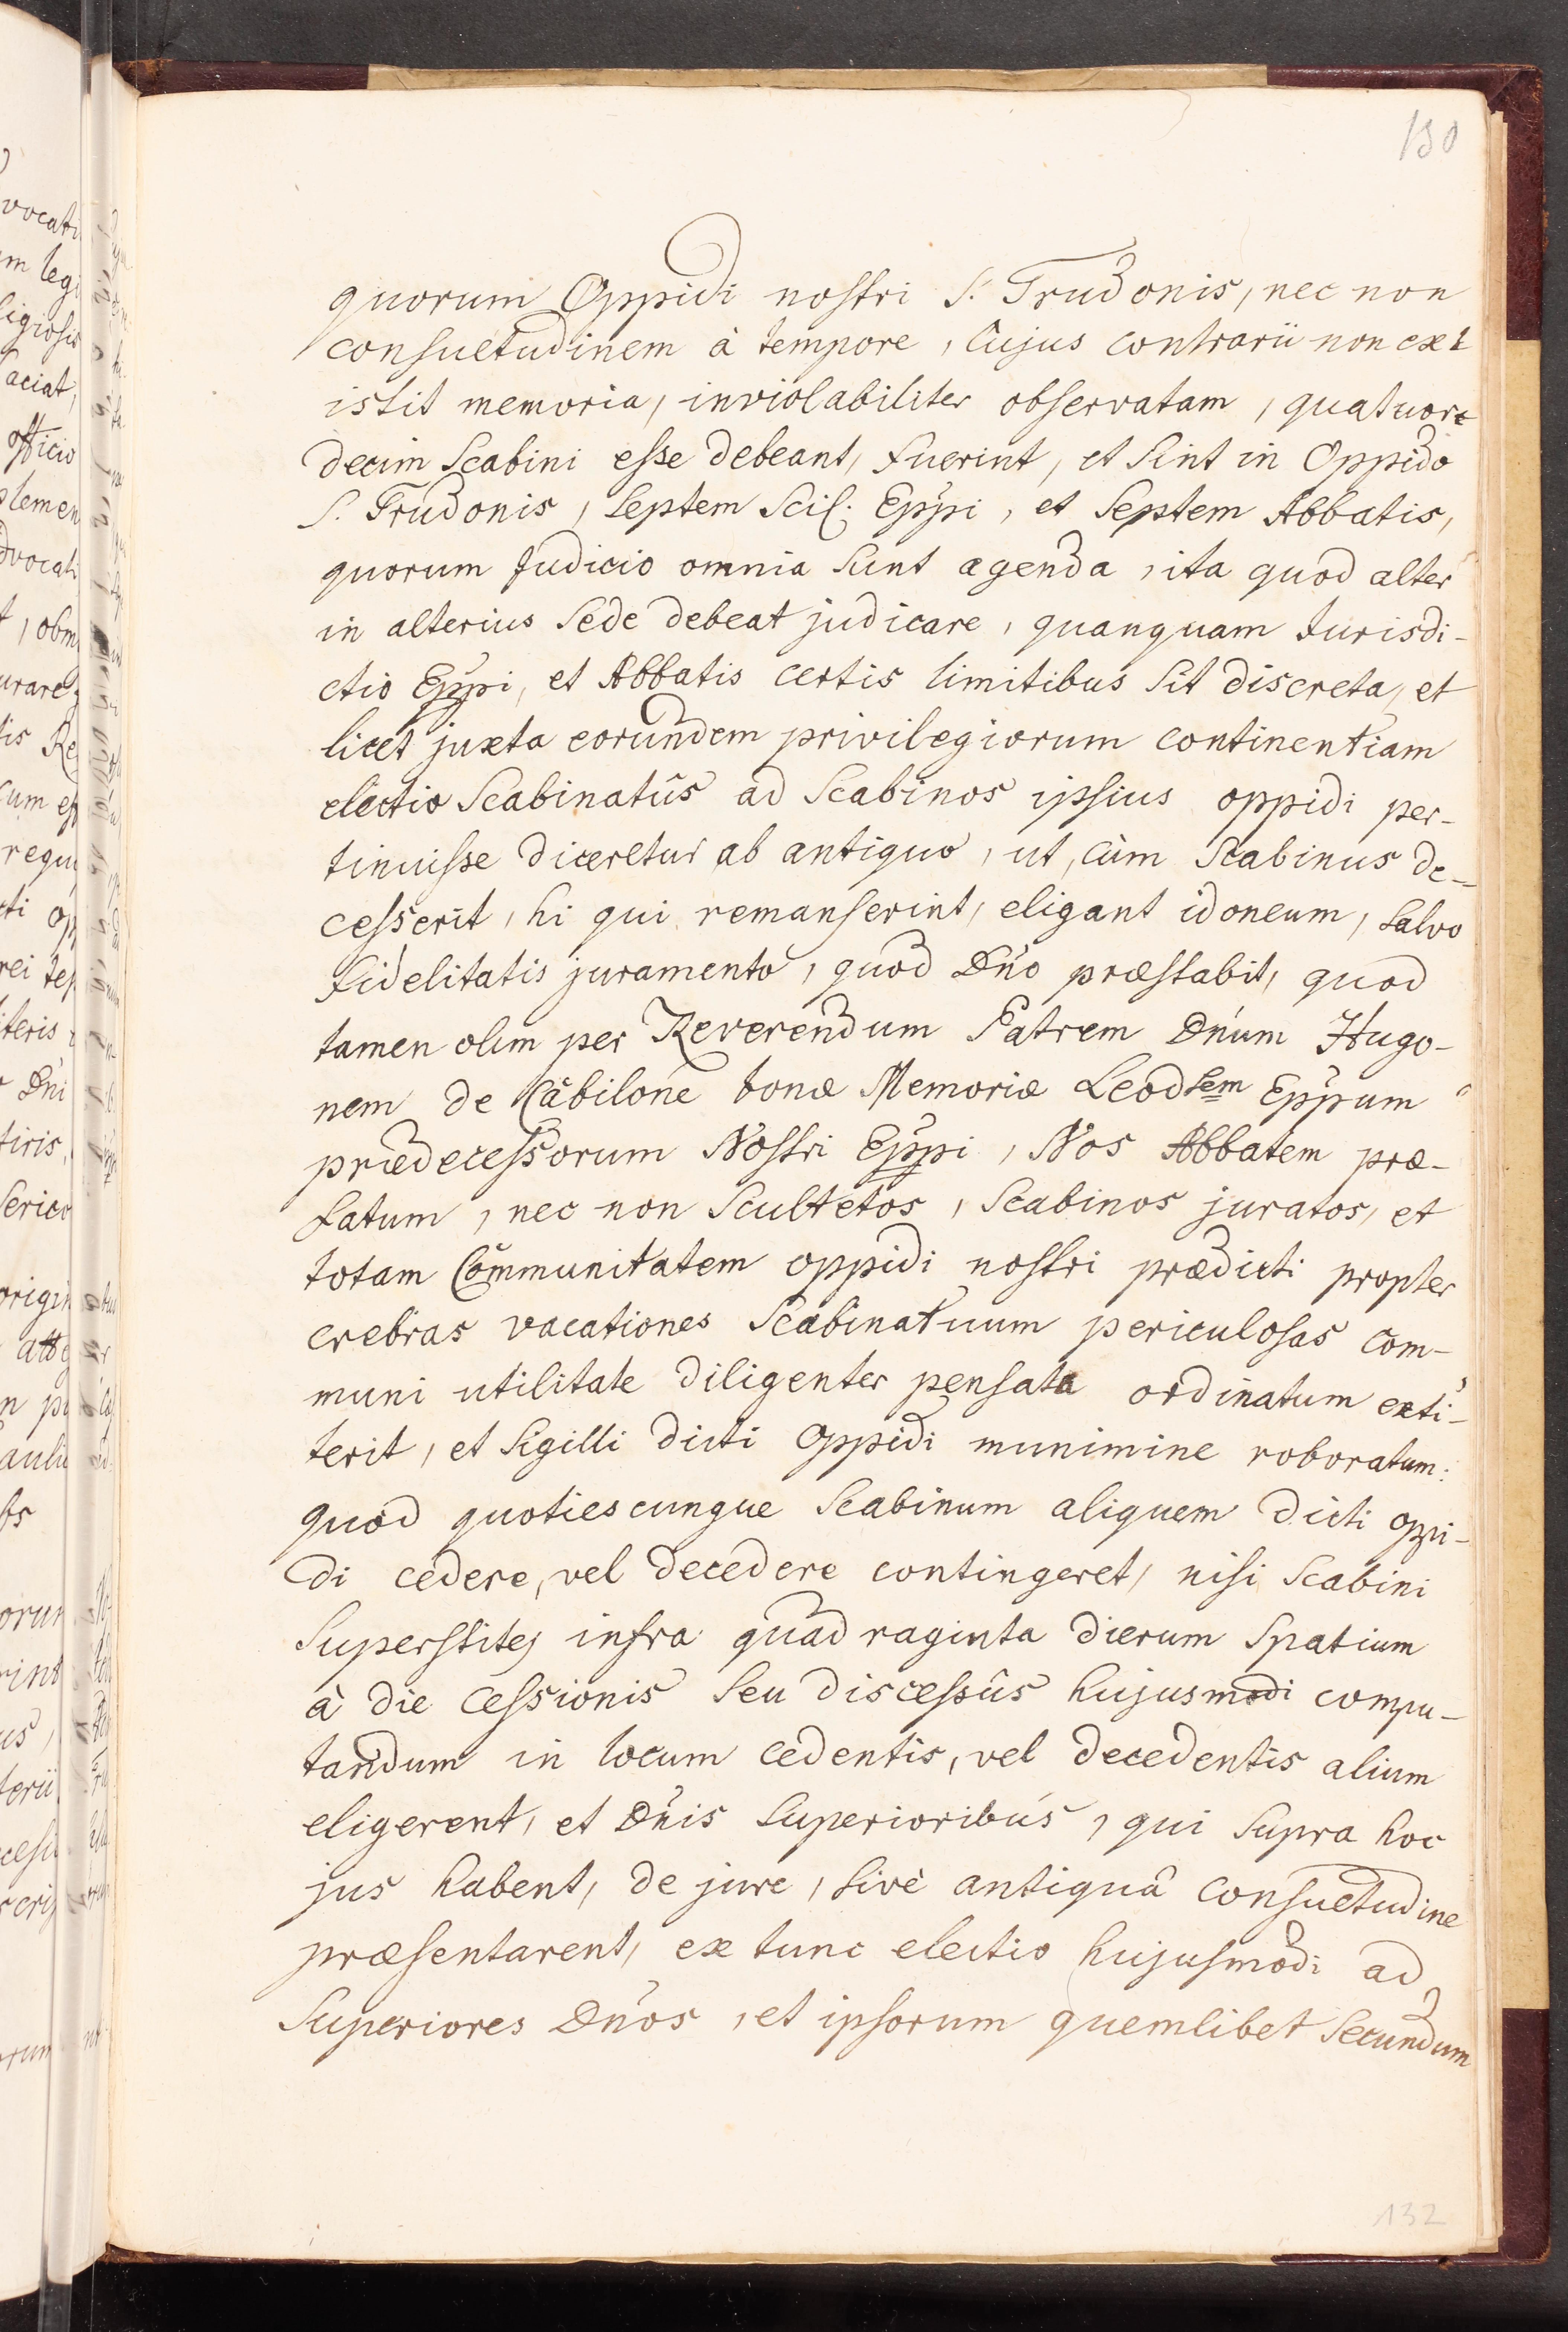 130
quorum Oppidi nostri S. Trudonis, nec non
consuetudinem à tempore, cujus contrarii non ex=
istit memoria, inviolabiliter observatam, quatuor=
decim Scabini esse debeant, fuerint, et sint in Oppido
S. Trudonis, septem scil. Eppi, et septem Abbatis,
quorum judicio omnia sunt agenda, ita quod alter
in alterius sede debeat judicare, quanquam jurisdi-
ctio Eppi, et Abbatis certis limitibus sit discreta, et
licet juxta eorundem privilegiorum continentiam
electio Scabinatûs ad Scabinos ipsius oppidi per-
tinuisse diceretur ab antiquo, ut, cùm Scabinus de-
cesserit, hi qui remanserint, eligant idoneum, salvo
fidelitatis juramento, quod Dño præstabit, quod
tamen olim per Reverendum Patrem Dñum Hugo-
nem de Cabilone bonæ Memoriæ Leodsem Eppum
prædecessorum Nostri Eppi, Nos Abbatem præ-
fatum, nec non Scultetos, Scabinos juratos, et
totam Communitatem oppidi nostri prædicti propter
crebras vacationes Scabinatuum periculosas com-
muni utilitate diligenter pensata ordinatum exti-
terit, et sigilli dicti oppidi munimine roboratum:
quod quotiescunque Scabinum aliquem dicti oppi-
di cedere, vel decedere contingeret, nisi Scabini
superstites infra quadraginta dierum spatium
à die cessionis seu discessûs hujusmodi compu-
tandum in locum cedentis, vel decedentis alium
eligerent, et Dñis superioribus, qui supra hoc
jus habent, de jure, sivè antiquâ consuetudine
præsentarent, ex tunc electio hujusmodi ad
Superiores Dños, et ipsorum quemlibet secundum
132